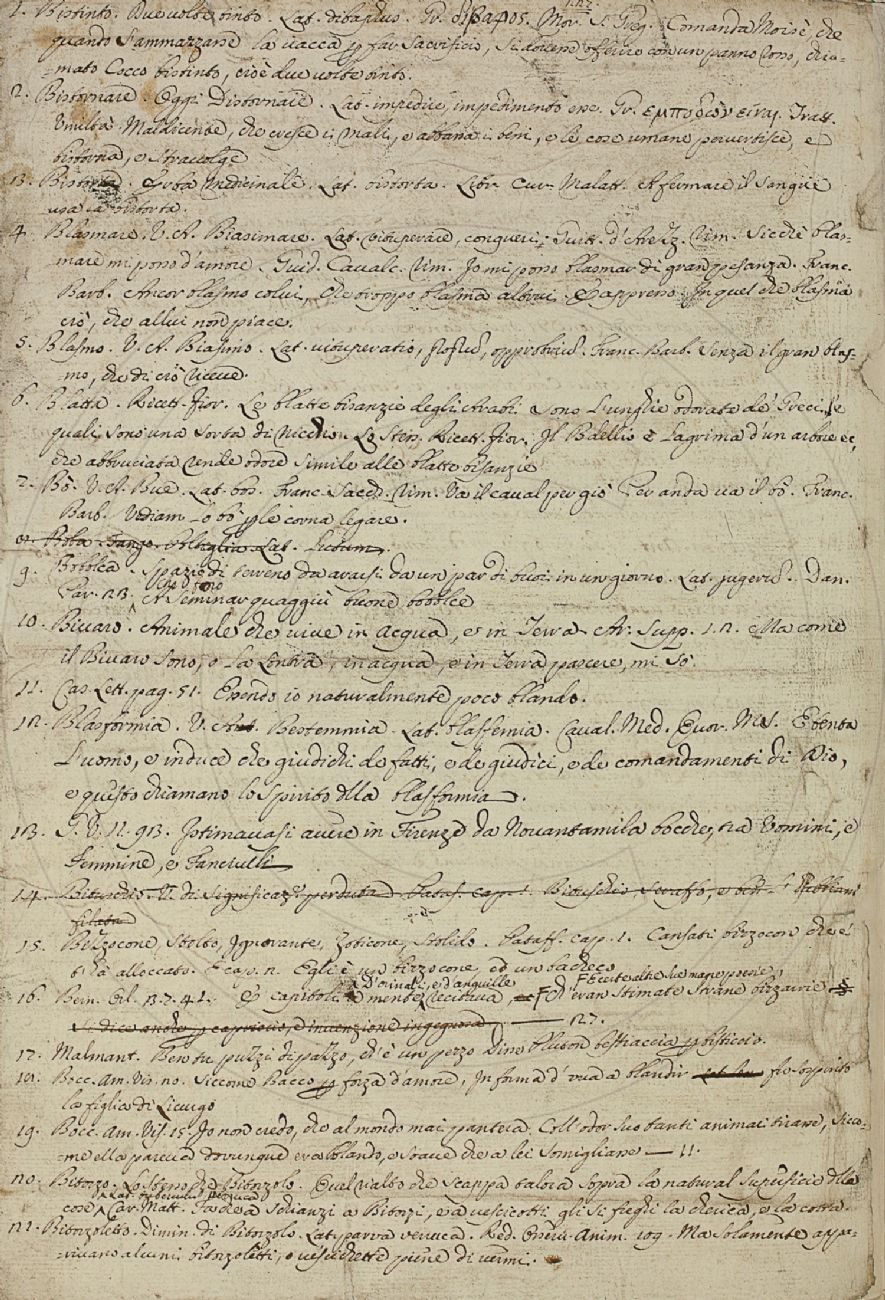 1. Bistinto. Due volte tinto. Lat. dibaphus. Gr. δίβαφος. Mor. S. Greg. Comanda Moisè, che
quando s'ammazzasse la vacca p far sacrificio, si dovesse offerire con un panno rosso, chia-
=mato Cocco bistinto, cioè due volte tinto.
2. Bistornare. Oggi Distornare. Lat. impedire, impedimento esse. Gr. εμποδων ειναι. Tratt.
Umiltà. Maldicente, che cresce i mali, e abbassa i beni, e le cose umane pervertisce, e
bistorna, e stravolge
13. Bistorta. Erba medicinale. Lat. bistorta. Libr. Cur. Malatt. A fermare il sangue
usa la bistorta.
4. Blasmare. V. A. Biasimare. Lat. vituperare, conqueri. Guitt. d'Arezz. Rim. Sicchè blas-
mare mi posso d'amore. Guid. Cavalc. Rim. Io mi posso blasmar di gran pesanza. Franc.
Barb. Ancor blasmo colui, Che troppo blasma altrui. E appresso: In quel che blasma
ciò, che allui non piace.
5. Blasmo. V. A. Biasimo. Lat. vituperatio, opprobriu. Franc. Barb. Senza il gran blas-
mo, che di ciò riceve.
6. Blatta. Ricett. Fior. Le blatte bisanzie degli Arabi sono l'unghie odorate de' Greci, le
quali sono una sorta di nicchio. Lo stess. Ricett. Fior. Il Bdellio è lagrima d'un arbore ec,
che abbruciata rende odore simile alle blatte bisanzie
7. Bò. V. A. Bue. Lat. bos. Franc. Sacch. Rim. Va il caval per giò Per anda va il bò. Franc.
Barb. Vediam lo bò p le corna legare.
8. Boba. Fango. Lat. Lutum.
9. Bobolca. Spazio di terreno da ararsi da un par di buoi in un giorno. Lat. jugeru. Dan.
Par. 23. Che foro A seminar quaggiù buone bobolce
10. Bivaro. Animale che vive in acqua, e in terra. Ar. Supp. 1. 2. Ma come
il Bivaro sono, o la lontra, in acqua, e in terra pascere, mi so.
11. Cas. Lett. pag. 51. Essendo io naturalmente poco blando.
12. Blasformia. V. Ant. Bestemmia. Lat. blasfemia. Caval. Med. Cuor. MS. E tenta
l'uomo, e induce che giudichi de fatti, e de giudici, e de comandamenti di Dio,
e questo chiamano lo Spirito dlla blasformia.
13. G. V. 11. 93. Istimavasi avere in Firenze da Novantamila bocche, tra Uomini, e
femmine, e fanciulli
14. Bituschio. V. di significaz. perduta. Pataff. cap. 1. Bituschio, scraffo, e
filata
15. Bizzocone, Stolto, Ignorante, Zoticone, Stolido. Pataff. cap. 1. Cansati bizzocon che e'
t'hà alloccato. E cap. 2. Egli è un bizzocone, ed un bacheco
16. Bern. Orl. 13. 7. 41. E capitoli a mente D'orinali, e d'anguille recitava E certe altre sue magne poesie, Ch'eran stimate strane bizzarrie
Si dice anche p capriccio, e invenzione ingegnosa 127.
17. Malmant. Ben tre puzzi di pazzo, ch'è un pezzo
18. Bocc. Am. Vis. 20. Siccome Bacco p forza d'amore, In forma d'uva a blandir
la figlia di Licurgo
19. Bocc. Am. Vis. 15. Io non credo, che al mondo mai pantera Coll'odor suo tanti animai tirasse, Sicco-
me ella pareva dovunque era blando, e soave che a lei somigliasse 11.
20. Bitorzo. Lo stesso che Bitorzolo. Quel rialto che scappa talora sopra la natural superficie dlla
cosa. Car. Matt. Faccia schianzi a Bitorzi, e a vescicotti gli si fregli la cherica, e la cotta.
21. Bitorzoletto. Dimin. di Bitorzolo. Lat. parva verruca. Red. Osserv. Anim. 109. Ma solamente appa-
=rivano alcuni bitorzoletti, o vescichette piene di vermi.